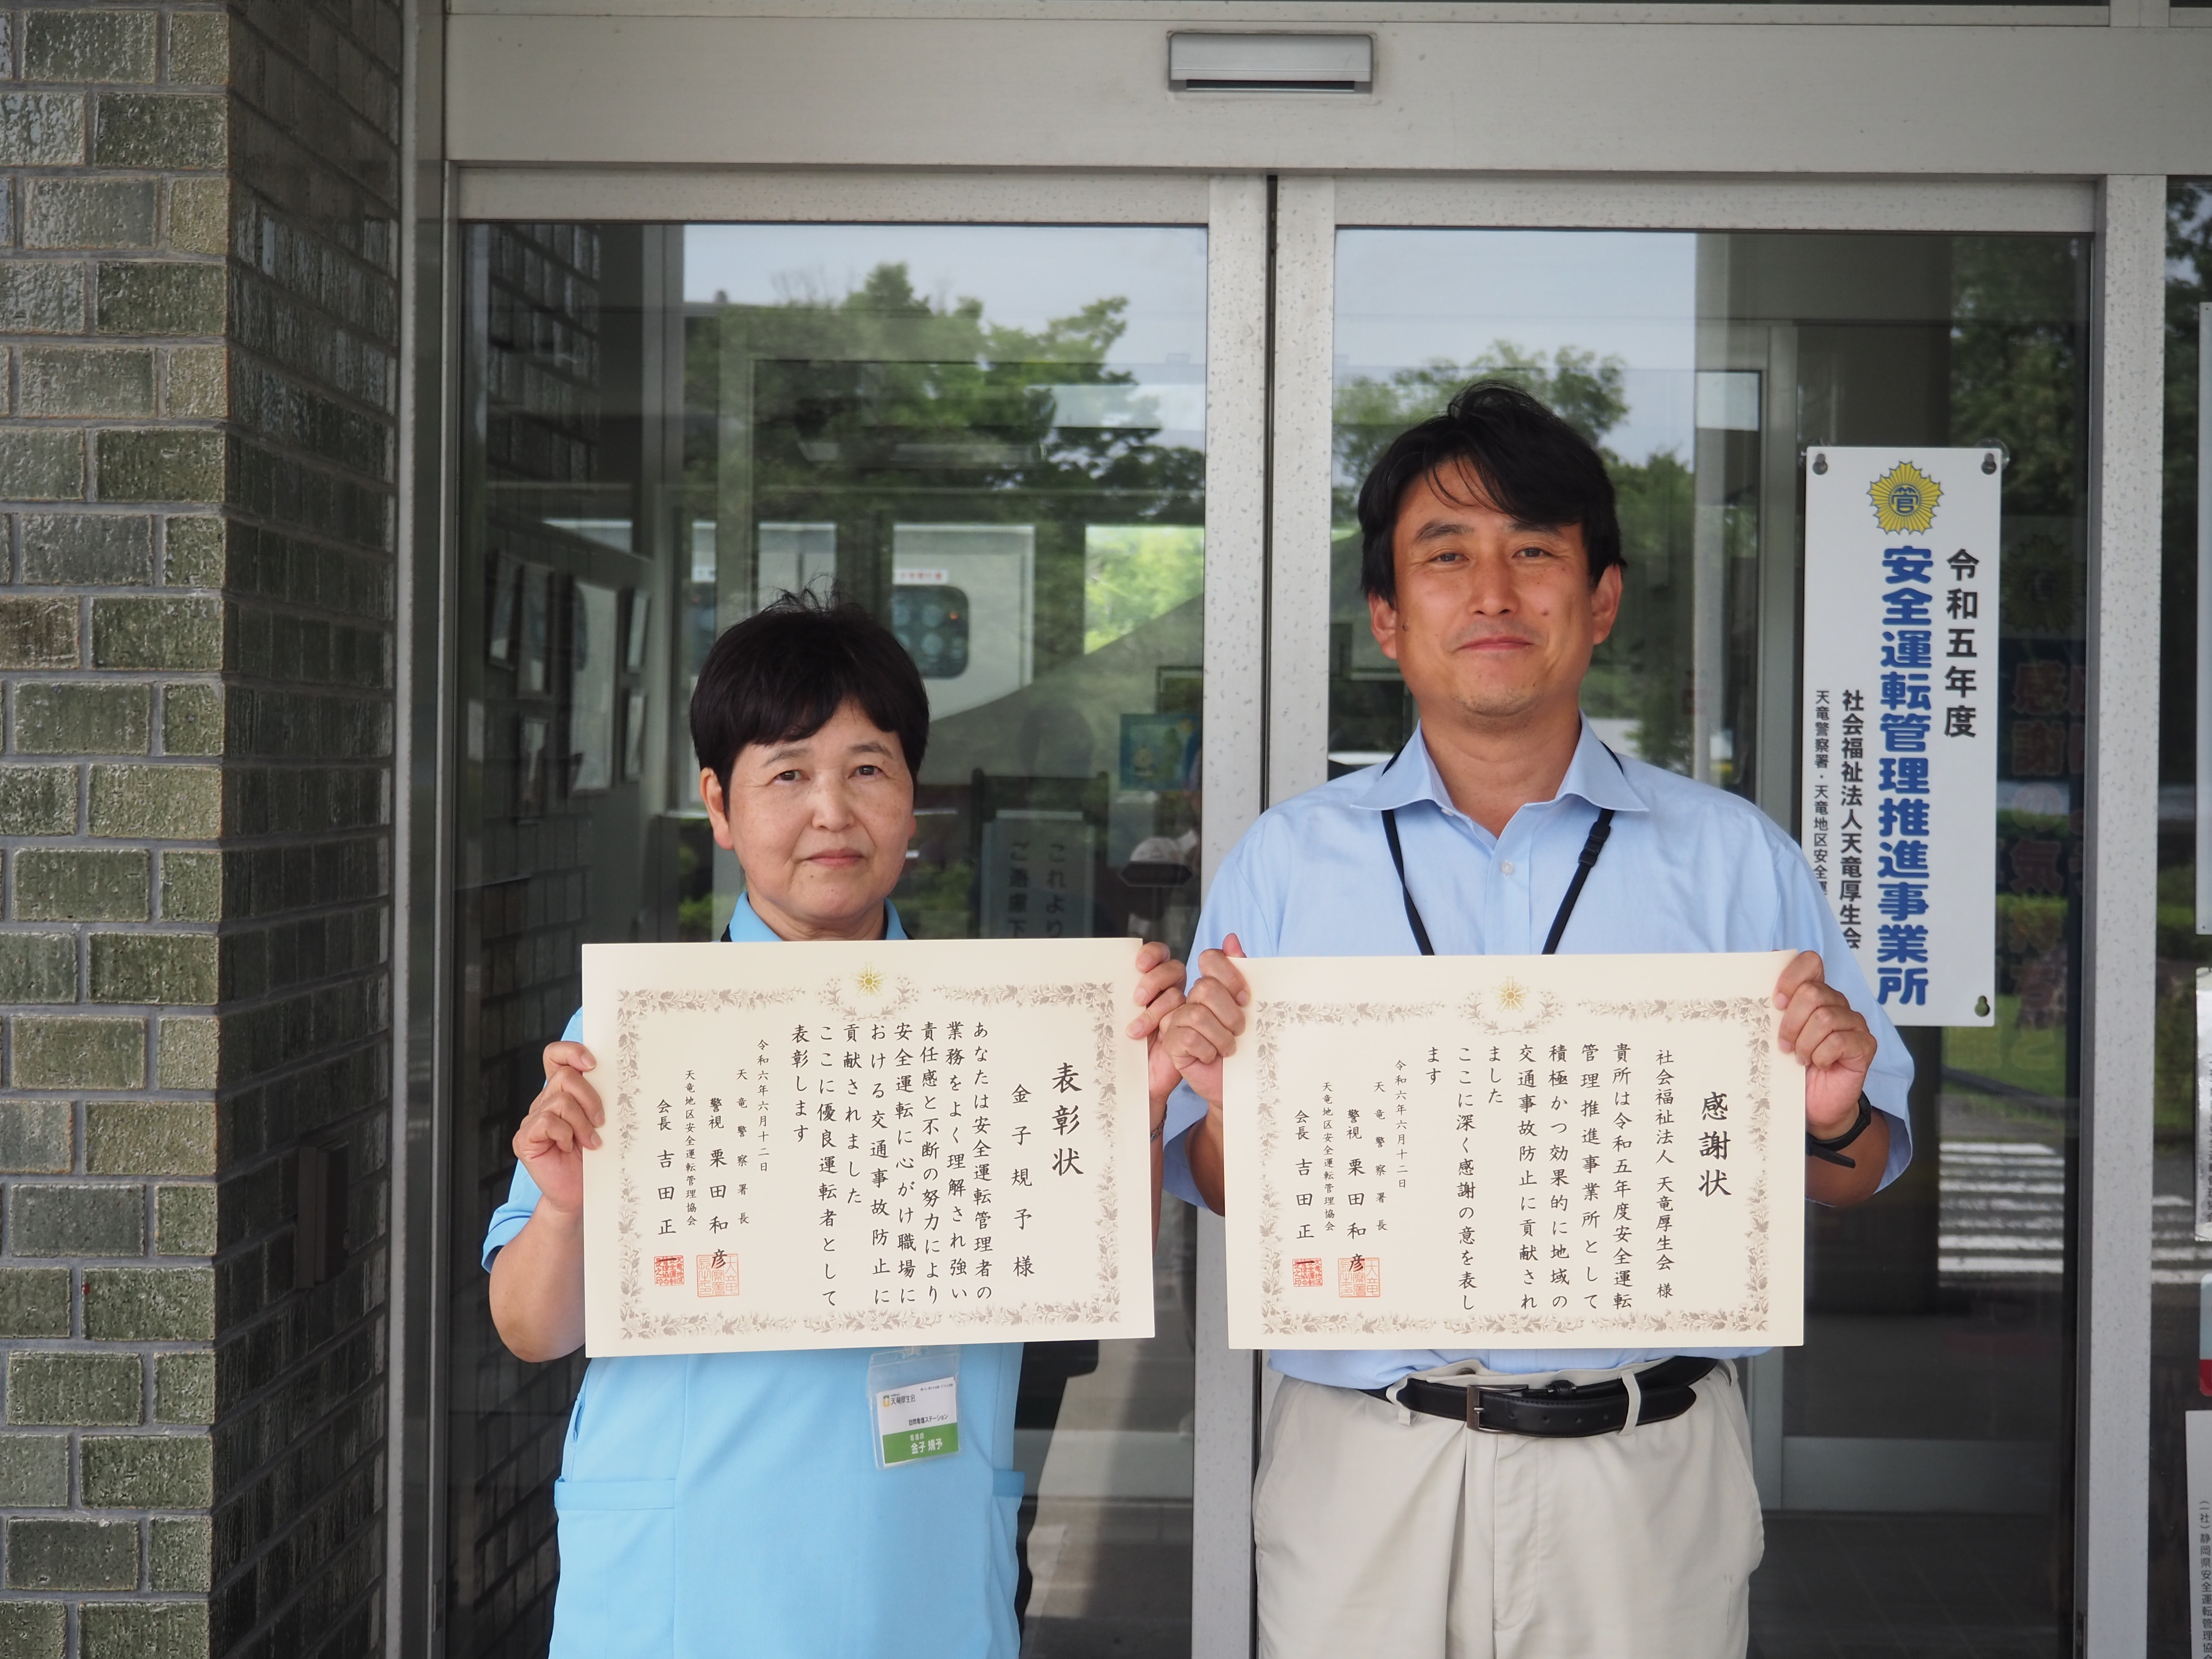 表彰状
金子規予様
あなたは安全運転管理者の
業務をよく理解され強い
責任感と不断の努力により
安全運転に心がけ職場に
おける交通事故防止に
貢献されました
ここに優良運転者として
表彰します
令和六年六月十二日
天竜警察署長
警視 栗田和彦
天竜地区安全運転管理協会
会長 吉田正一
感謝状
社会福祉法人 天竜厚生会 様
貴所は令和五年度安全運転
管理推進事業所として
積極かつ効果的に地域の
交通事故防止に貢献され
ました
ここに深く感謝の意を表し
ます
令和六年六月十二日
天竜警察署長
警視 栗田和彦
天竜地区安全運転管理協会
会長 吉田正一
令和五年度
安全運転管理推進事業所
社会福祉法人天竜厚生会
天竜警察署・天竜地区安全運
天竜厚生会
訪問看護ステーション
金子規予
これより
ご遠慮下
(一社)静岡県安全運転管理協